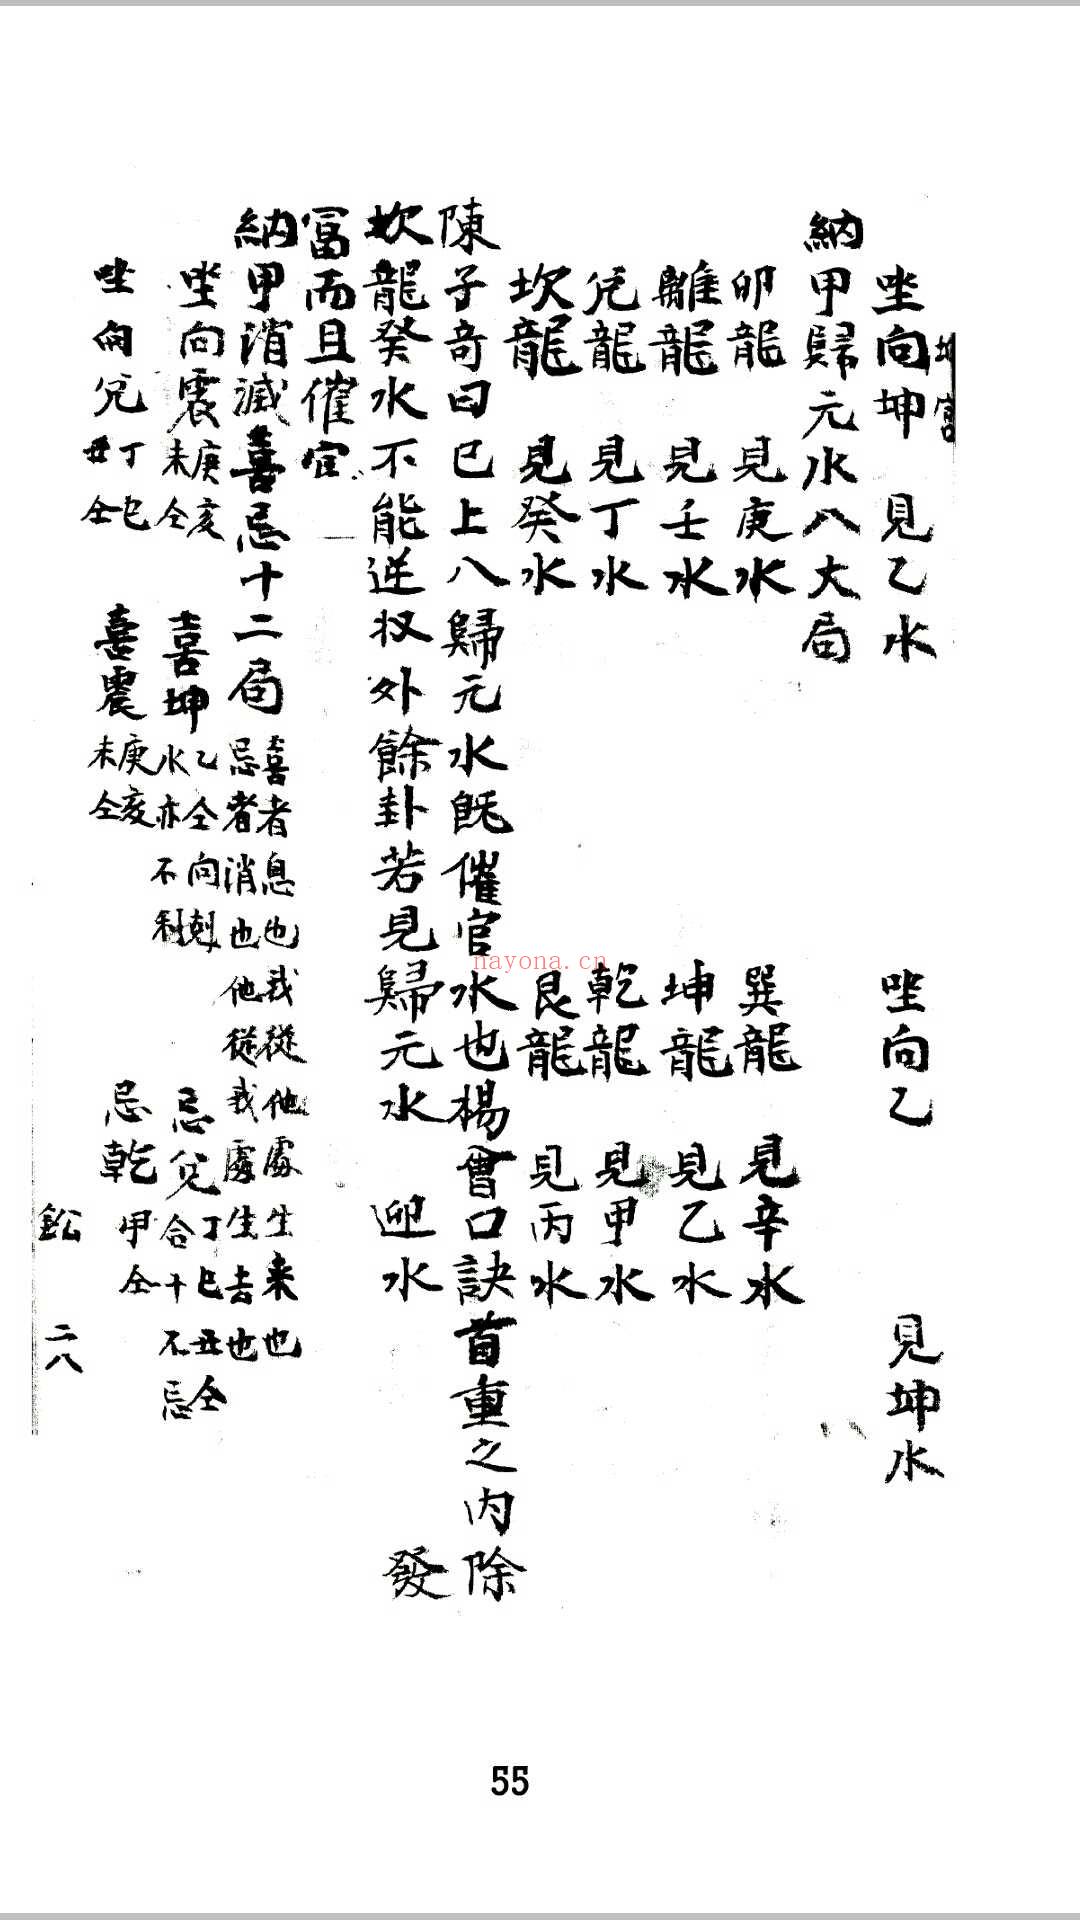 坤宮
坐向坤 見乙水 坐向乙 見坤水
納甲歸元水八大局
卯龍 見庚水 巽龍 見辛水
離龍 見壬水 坤龍 見乙水
兌龍 見丁水 乾龍 見甲水
坎龍 見癸水 艮龍 見丙水
陳子奇曰巳上八歸元水既催官水也楊曾口訣首重之內除
坎龍癸水不能逆收外餘卦若見歸元水 迎水 發
富而且催官
納甲消滅喜忌十二局 喜者息也我從他處生來也
忌者消也他從我處生去也
坐向震 庚亥未仝 喜坤 乙仝向剋水亦不利 忌兌 丁巳丑仝合十不忌
坐向兌 丁巳丑仝 喜震 庚亥未仝 忌乾 甲仝
二八
nayona.cn
55